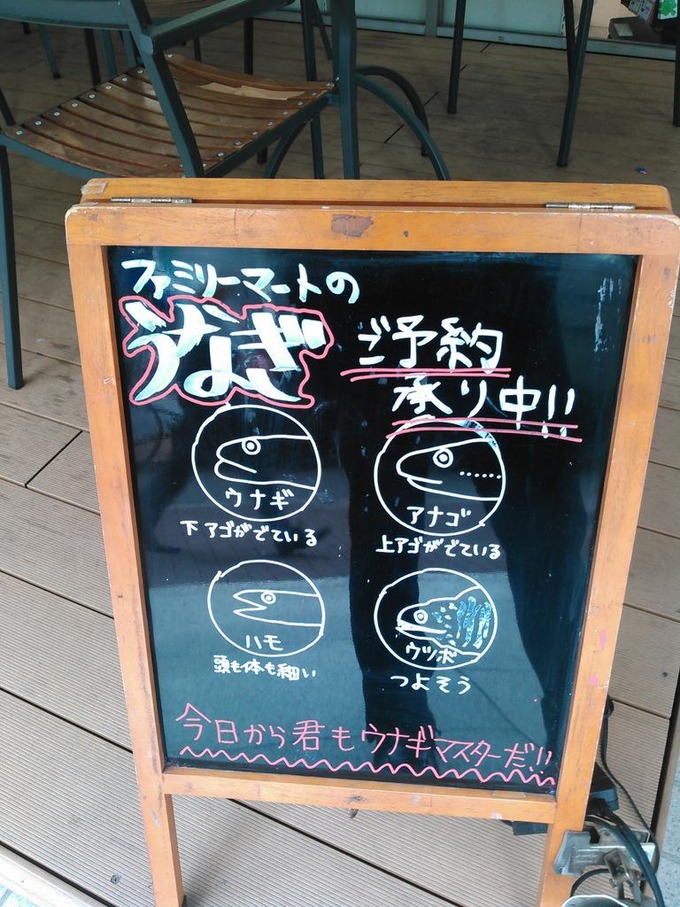 ファミリーマートの
うなぎ
ご予約
承り中!!
ウナギ
下アゴがでている
アナゴ
上アゴがでている
ハモ
頭も体も細い
ウツボ
つよそう
今日から君もウナギマスターだ!!